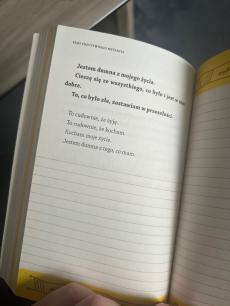 Jestem dumna z mojego życia.
Cieszę się ze wszystkiego, co było i jest w nim
dobre.
To, co było złe, zostawiam w przeszłości.
To cudownie, że żyję.
To cudownie, że kocham.
Kocham moje życie.
Jestem dumna z tego, co mam.